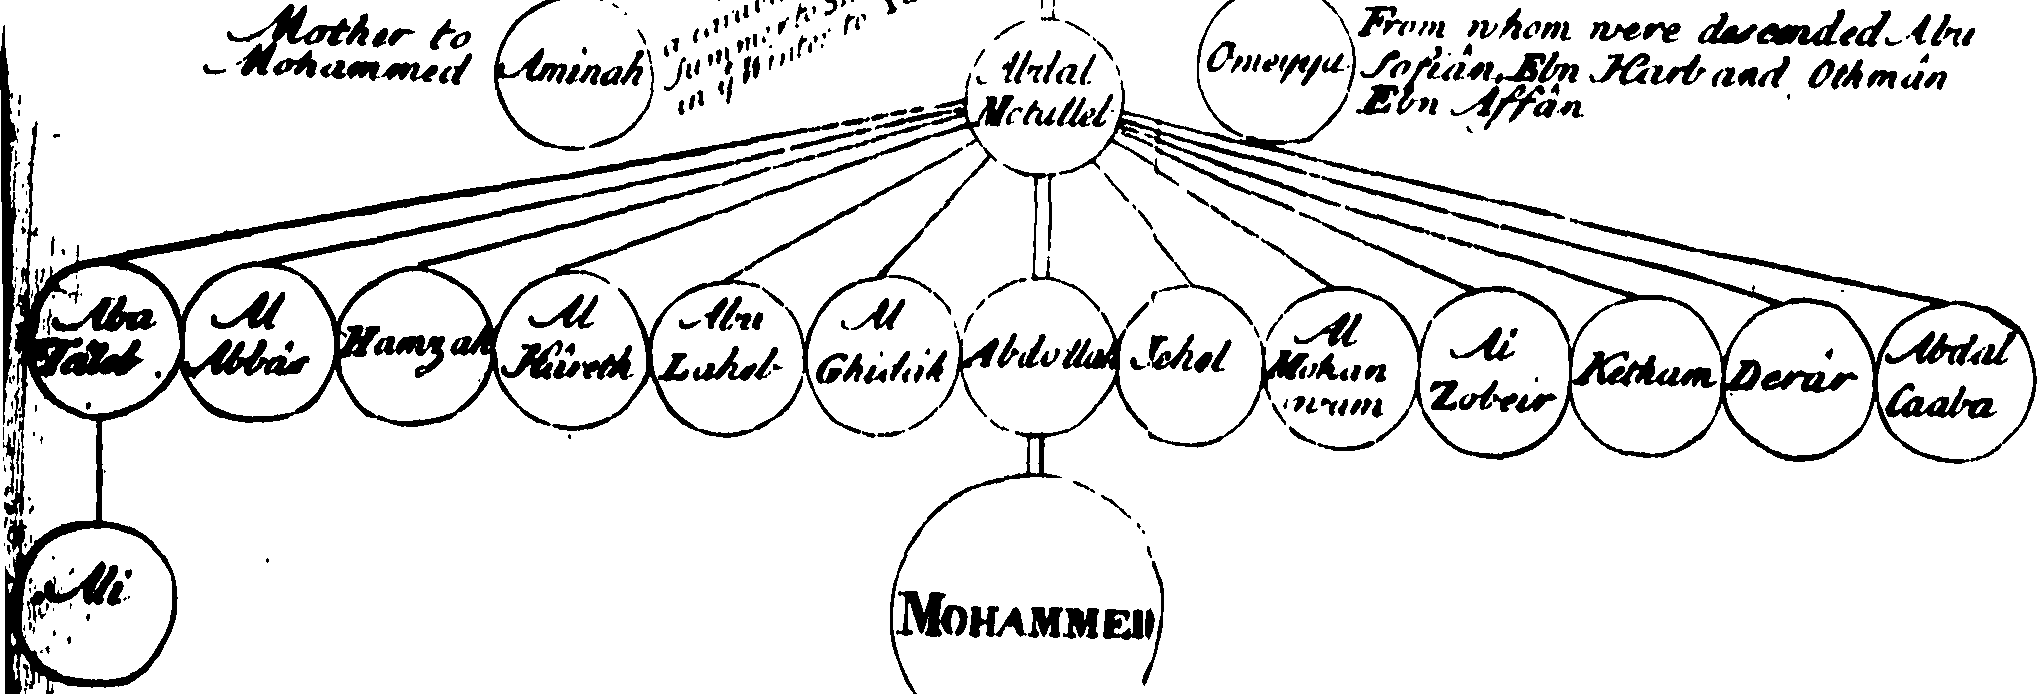 Mother to
Mohammed
Aminah
a
Summer to
in y Winter to
Abdal
Motalleb
Omeyya
From whom were descended Abu
Sofiân, Ebn Harb and Othmân
Ebn Affân
Abu
Taleb
Al
Abbâs
Hamzah
Al
Hâreth
Abu
Laheb
Al
Abdollah
Al
Al
Zobeir
Ketham
Derâr
Abdal
Caaba
Ali
MOHAMMED